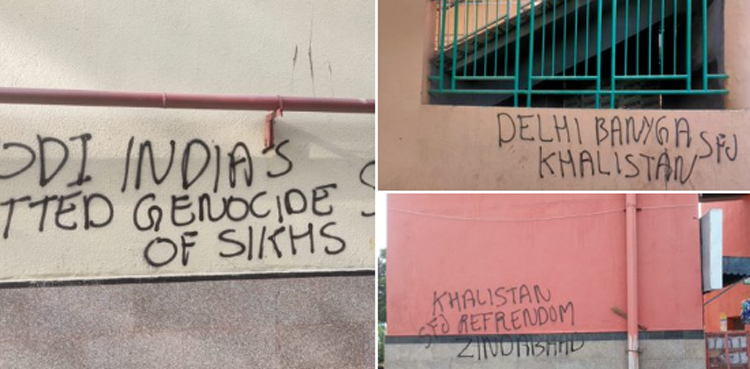 ODI INDIA'S
TTED GENOCIDE S
OF SIKHS
DELHI BANYGA SFJ
KHALISTAN
KHALISTAN
SFJ REFRENDOM
ZINDABHAD